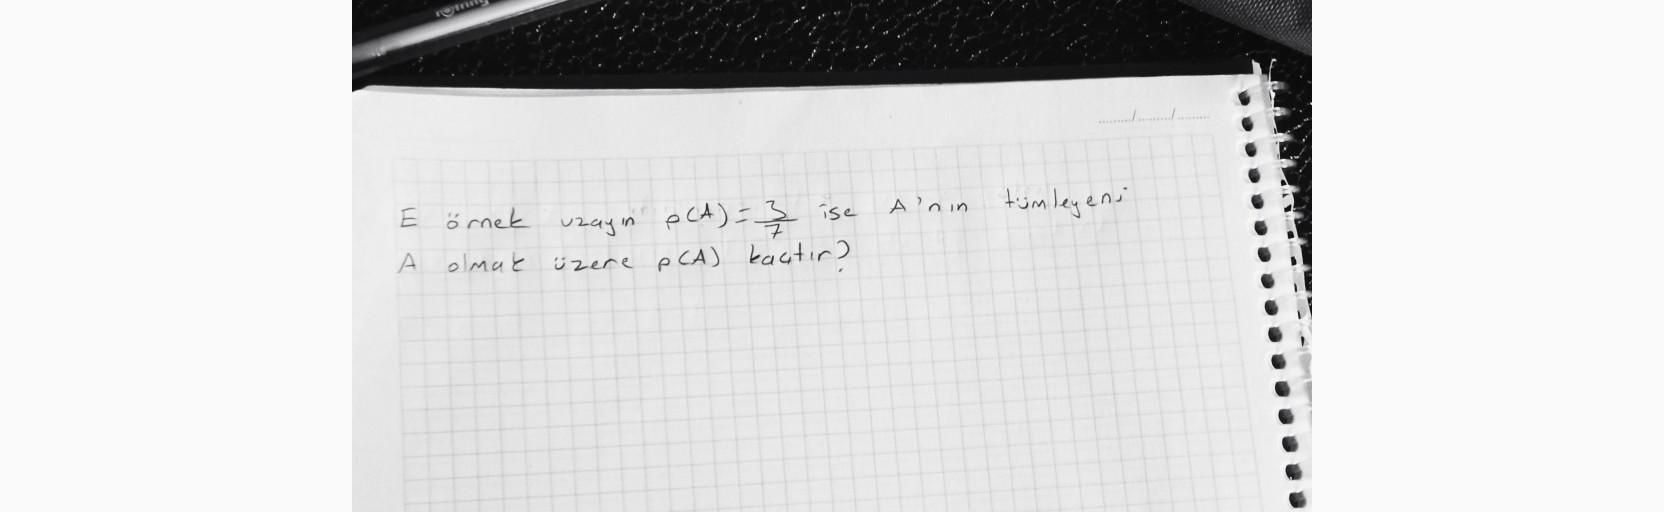 rotring
...../...../.....
E örnek uzayın p(A) = 3/7 ise A'nın tümleyeni
A olmak üzere p(A) kaçtır?